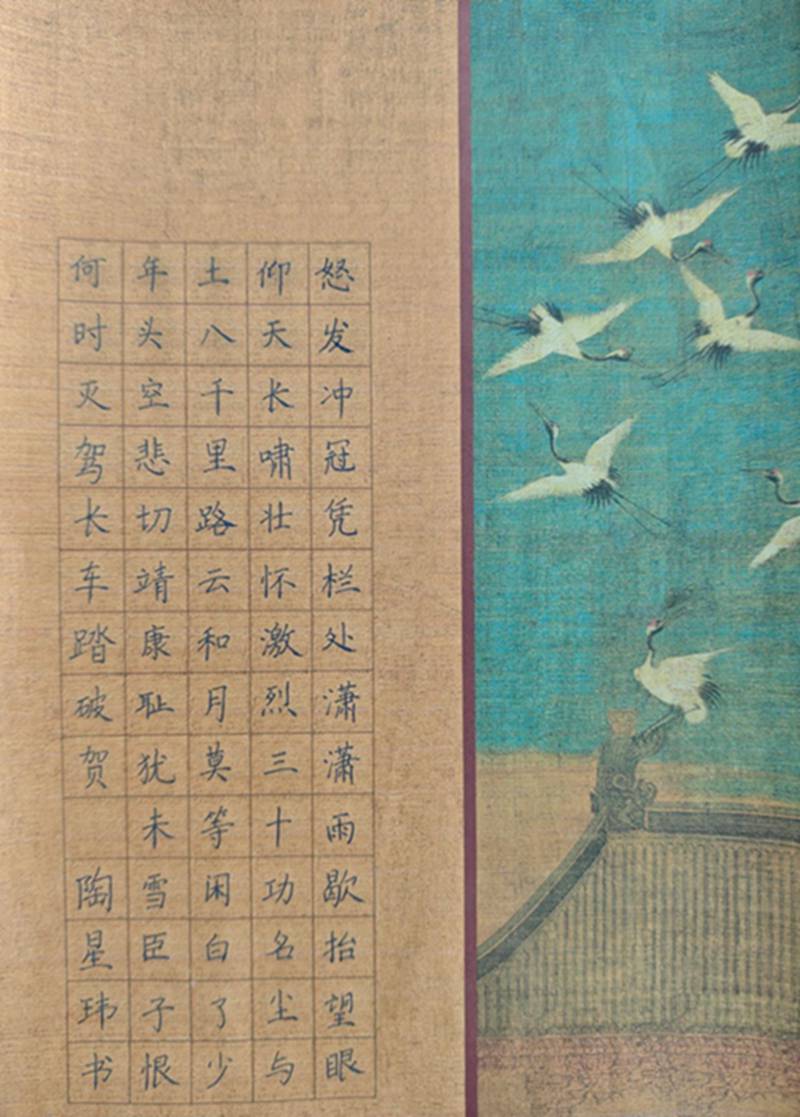 怒发冲冠凭栏处潇潇雨歇抬望眼
仰天长啸壮怀激烈三十功名尘与
土八千里路云和月莫等闲白了少
年头空悲切靖康耻犹未雪臣子恨
何时灭驾长车踏破贺 陶星玮书